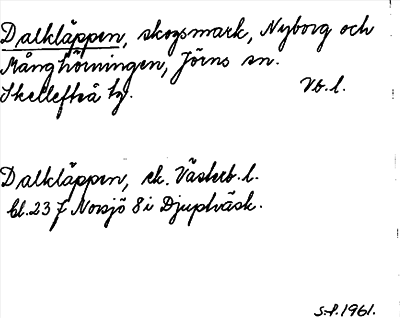 Dalkläppen, skogsmark, Nyborg och
Månghörningen, Jörns sn.
Skellefteå tg. Vb.l.
Dalkläppen, ek. Västerb. l.
Bl. 23 J Norsjö 8 i Djupträsk.
S.f. 1961.